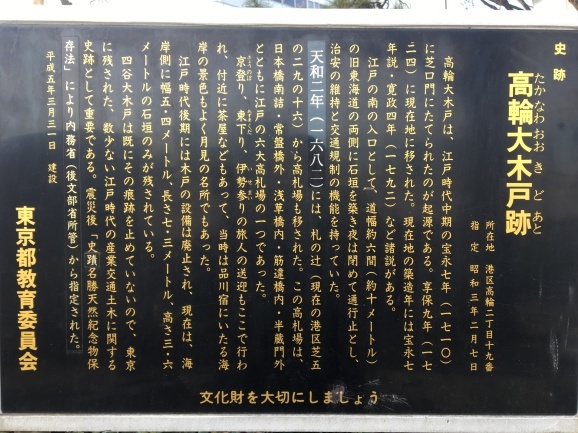 史跡
高輪大木戸跡
たかなわおおきどあと
所在地 港区高輪二丁目十九番
指定 昭和三年二月七日
高輪大木戸は、江戸時代中期の宝永七年(一七一〇)
に芝口門にたてられたのが起源である。享保九年(一七
二四)に現在地に移された。現在地の築造年には宝永七
年説・寛政四年(一七九二)など諸説がある。
江戸の南の入口として、道幅約六間(約十メートル)
の旧東海道の両側に石垣を築き夜は閉めて通行止とし、
治安の維持と交通規制の機能を持っていた。
天和二年(一六八二)には、札の辻(現在の港区芝五
の二九の十六)から高札場も移された。この高札場は、
日本橋南詰・常盤橋外・浅草橋内・筋違橋内・半蔵門外
とともに江戸の六大高札場の一つであった。
京登り、東下り、伊勢参りの旅人の送迎もここで行わ
れ、付近に茶屋などもあって、当時は品川宿にいたる海
岸の景色もよく月見の名所でもあった。
江戸時代後期には木戸の設備は廃止され、現在は、海
岸側に幅五・四メートル 長さ七・三メートル、高さ三・六
メートルの石垣のみが残されている。
四谷大木戸は既にその痕跡を止めていないので、東京
に残された、数少ない江戸時代の産業交通土木に関する
史跡として重要である。震災後「史蹟名勝天然紀念物保
存法」により内務省(後文部省所管)から指定された。
平成五年三月三一日 建設
東京都教育委員会
文化財を大切にしましょう